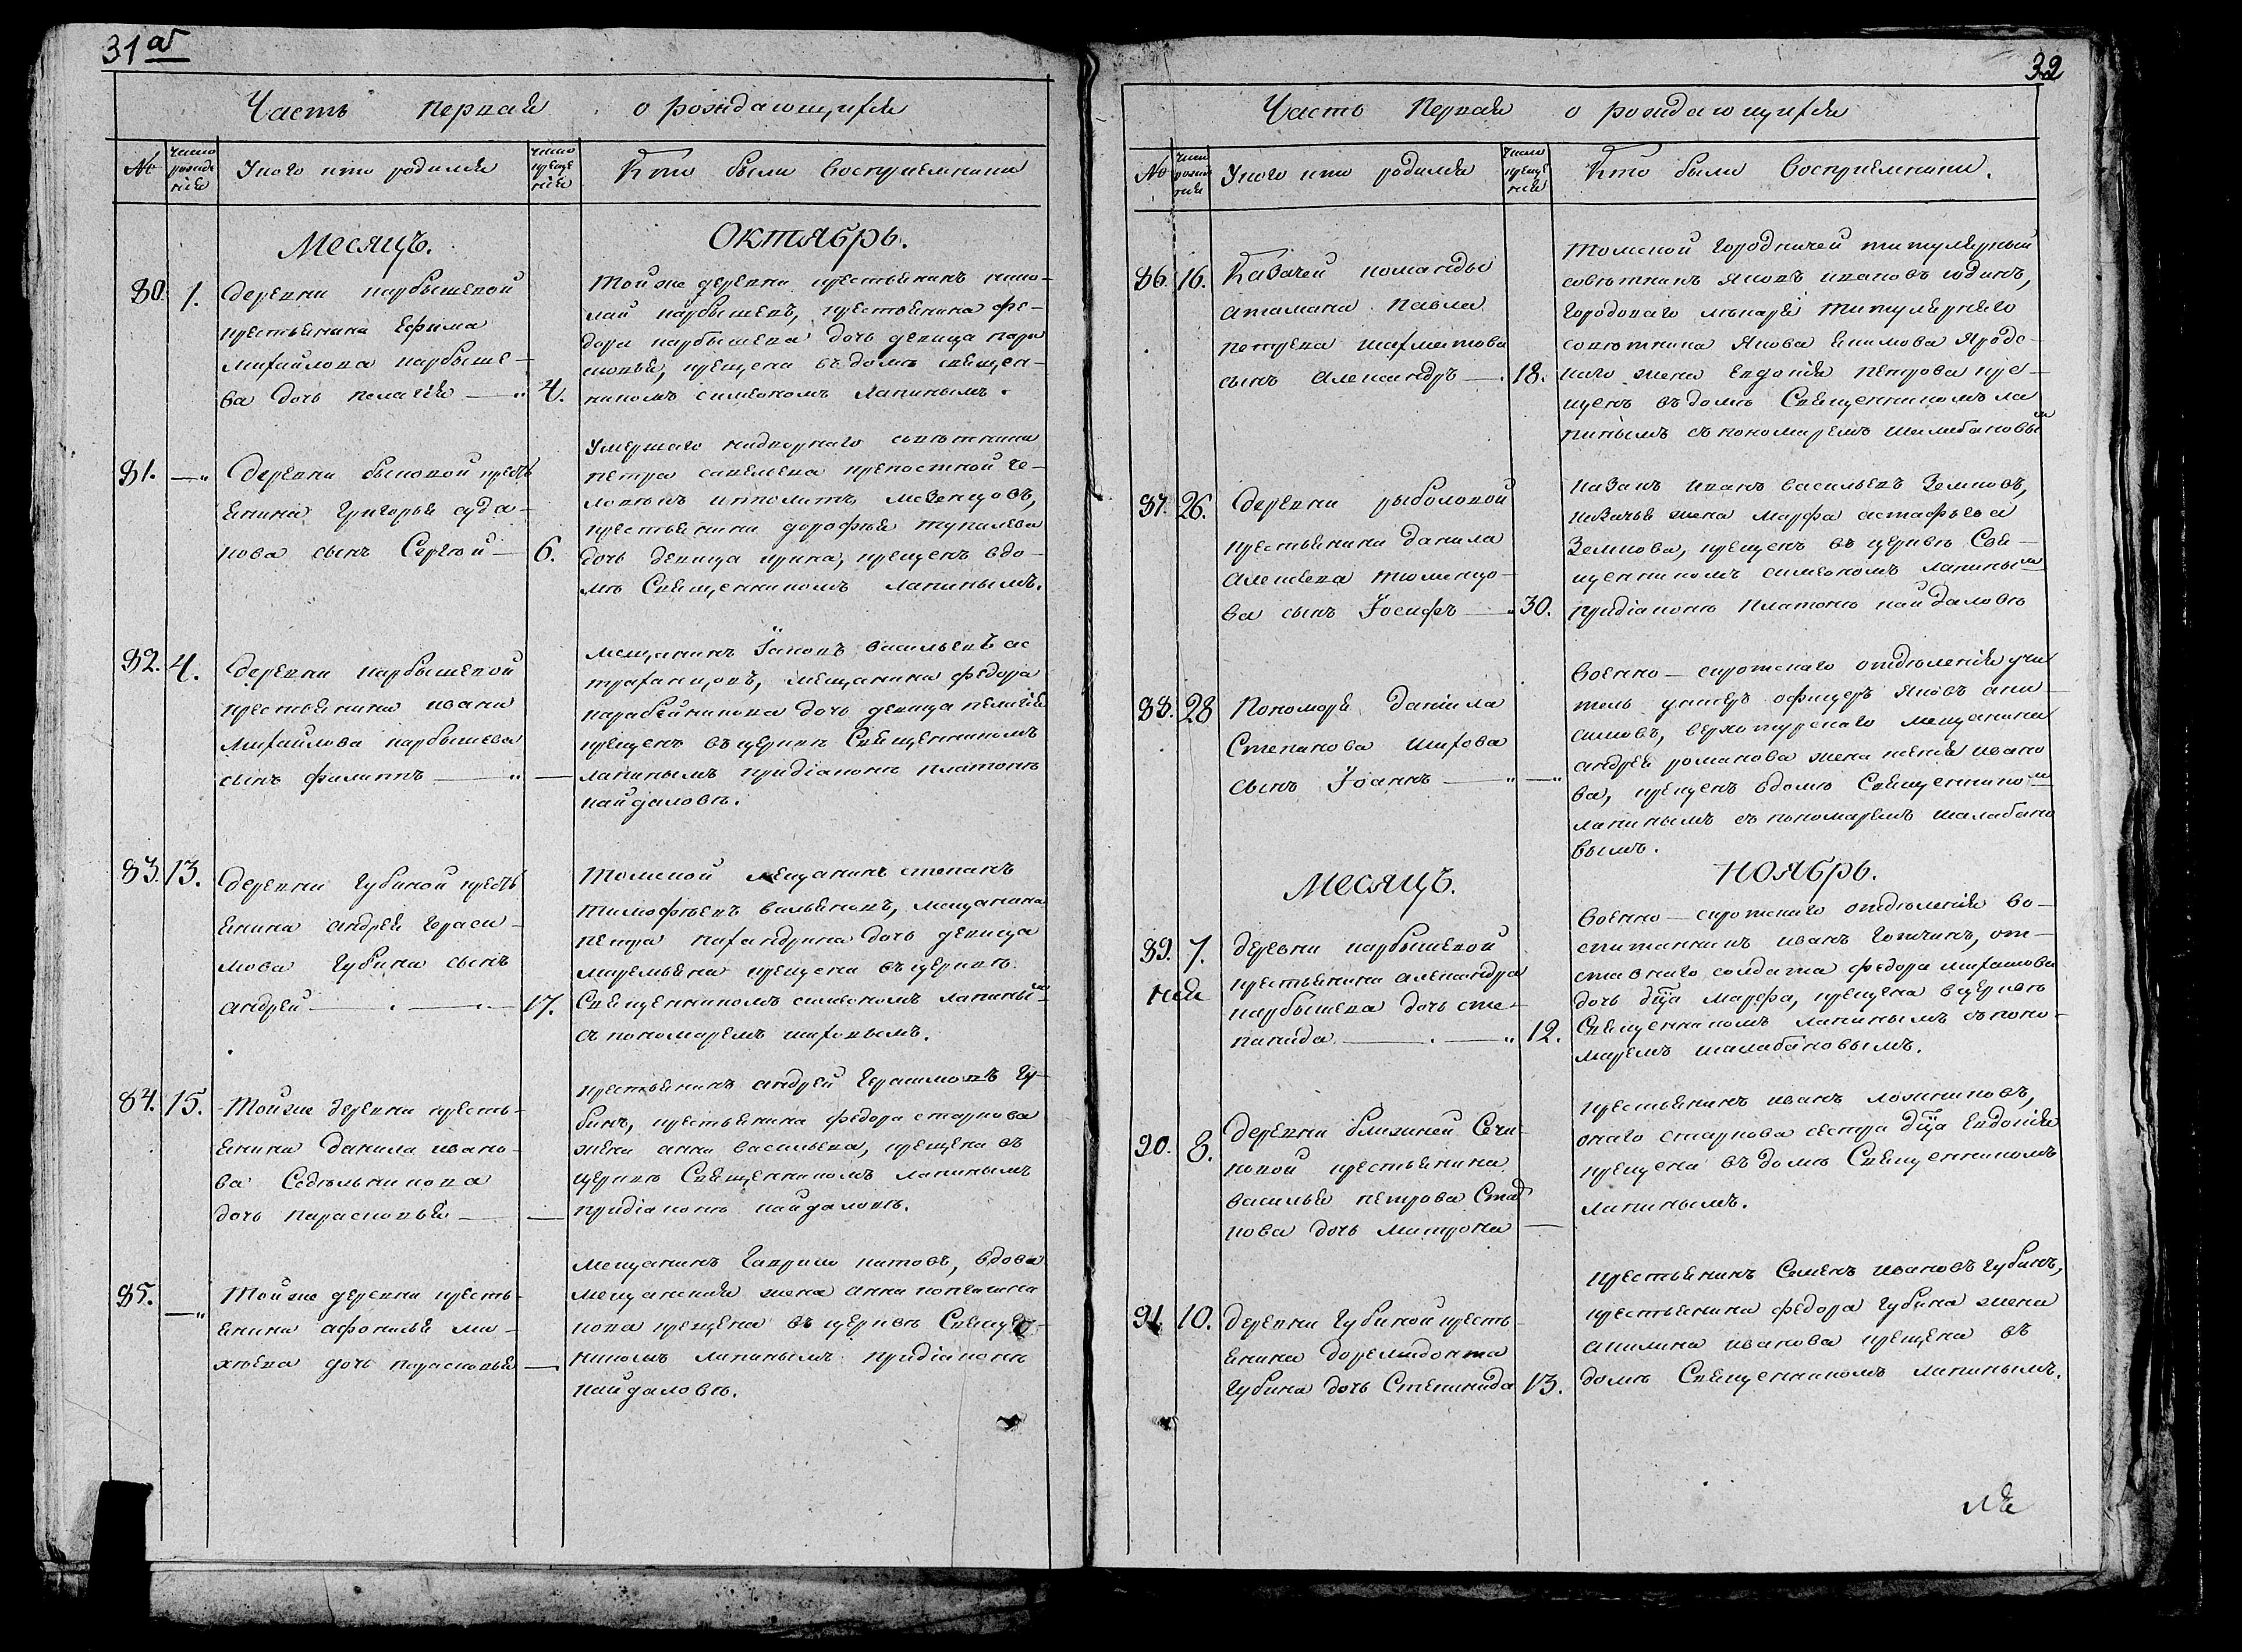 31 об
Часть первая о рождающихся
№
число рождения
У кого кто родился
число крещения
Кто были восприемники
Месяцъ. Октябрь.
80. 1.
деревни карбышевой
крестьянина Ефима
михайлова карбыше-
ва дочь пелагѣя — „ 4.
той же деревни крестьянинъ нико-
лай карбышевъ, крестьянина фе-
дора карбышева дочь девица пара
сковья, крещена въ домѣ священ-
никомъ симеономъ лапинымъ.
81. —„
деревни быковой кресть
янина григорья суда-
кова сынъ Сергѣй — 6.
Умершаго надворнаго совѣтника
петра савельева крепостной че-
ловѣкъ ипполитъ мезенцовъ,
крестьянина дорофѣя тупилева
дочь девица ирина, крещенъ вдо-
мѣ Священникомъ лапинымъ.
82. 4.
деревни карбышевой
крестьянина ивана
михайлова карбышева
сынъ филиппъ — „ —
мещанинъ Іаковъ васильевъ ас
траханцовъ, мещанина федора
карабейникова дочь девица пелагѣя
крещенъ въ церкви Священникомъ
лапинымъ придіаконѣ платонѣ
кайдаловѣ.
83. 13.
деревни губиной кресть
янина андрея гераси-
мова губина сынъ
андрей — . — 17.
томской мещанинъ степанъ
тимофѣевъ вильяновъ, мещанина
петра кафандрина дочь девица
маремьяна крещена въ церкви
Священникомъ симеономъ лапинымъ
съ пономаремъ шиховымъ.
84. 15.
той же деревни кресть-
янина данила ивано-
ва Седѣльникова
дочь парасковья — —
крестьянинъ андрей герасимовъ гу-
бинъ, крестьянина федора старкова
жена анна васильева, крещена въ
церквѣ Священникомъ лапинымъ
придіаконѣ кайдаловѣ.
85. —„
той же деревни кресть-
янина афонасья ми-
хѣева дочь парасковья —
мещанинъ гаврило китовъ, вдова
мещанская жена анна
нова крещена въ церквѣ Священ-
никомъ лапинымъ придіаконѣ
кайдаловѣ.
32
Часть первая о рождающихся
№
число рождения
У кого кто родился
число крещения
Кто были восприемники.
86. 16.
Казачей команды
атамана павла
петрова шахматова
сынъ александръ — . 18.
томской городничей титулярный
совѣтникъ яковъ ивановъ юдинъ,
городоваго лѣкаря титулярнаго
совѣтника якова екимова яродс-
каго жена евдокія петрова кре-
щенъ въ домѣ Священникомъ ла
пинымъ съ пономаремъ шалабановы
87. 26.
деревни рыболовой
крестьянина данила
алексѣева тюменцо-
ва сынъ Іосифъ — „ 30.
казакъ иванъ васильевъ Земковъ,
казачья жена марфа астафьева
Земкова, крещенъ въ церквѣ Свя-
щенникомъ симеономъ лапинымъ
придіаконѣ платонѣ кайдаловѣ
88. 28
пономаря данила
Степанова шихова
сынъ Іоаннъ — „ —„
военно-сиротскаго отдѣленія учи
тель унтеръ офицеръ яковъ ани-
симовъ, верхотурскаго мещанина
андрея романова жена ксенія ивано
ва, крещенъ вдомѣ Священникомъ
лапинымъ съ пономаремъ шалабано
вымъ.
Месяцъ. Ноябрь.
89. 7.
ная
деревни карбышевой
крестьянина александра
карбышева дочь сте-
панида — . — „ 12.
военно-сиротскаго отдѣленія во-
спитанникъ иванъ готчинъ, от-
ставнаго солдата федора михайлова
дочь дѣца марфа, крещена вцерквѣ
Священникомъ лапинымъ съ поно-
маремъ шалабановымъ.
90. 8.
деревни ближней Сечи-
новой крестьянина
василья петрова Стар
кова дочь матрона —
крестьянинъ иванъ ложниковъ,
онаго старкова сестра дѣца Евдокія
крещена въ домѣ Священникомъ
лапинымъ.
91. 10.
деревни губиной кресть-
янина доремидонта
губина дочь Степанида 13.
крестьянинъ Семенъ ивановъ губинъ,
крестьянина федора губина жена
акилина иванова крещена въ
домѣ Священникомъ лапинымъ.